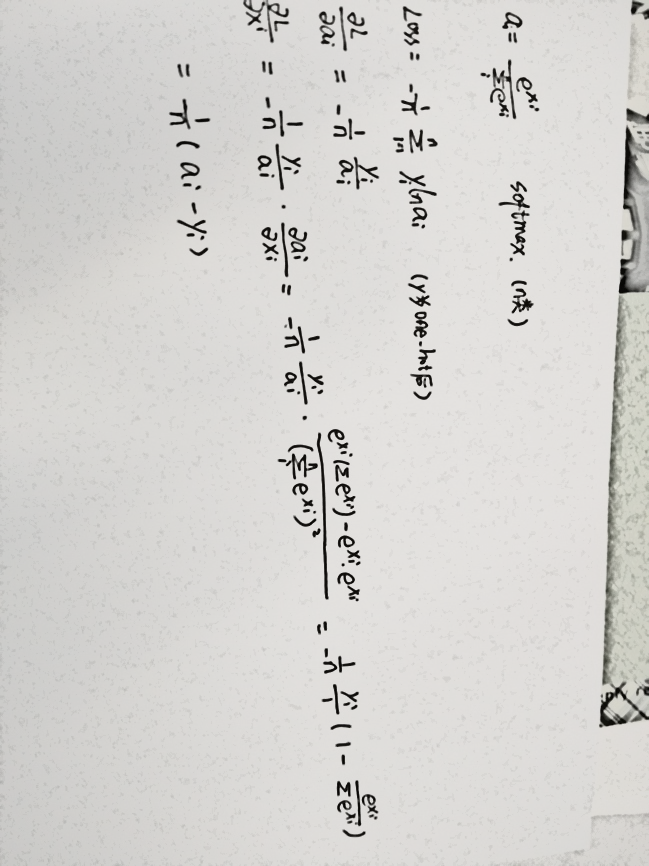 aᵢ = e^{xᵢ} / Σᵢ e^{xᵢ}   softmax. (n类)
Loss = -1/n Σ_{i=1}^{n} yᵢ ln aᵢ   (y为one-hot后)
∂L/∂aᵢ = -1/n yᵢ/aᵢ
∂L/∂xᵢ = -1/n yᵢ/aᵢ · ∂aᵢ/∂xᵢ = -1/n yᵢ/aᵢ · (e^{xᵢ}(Σe^{xᵢ}) - e^{xᵢ}·e^{xᵢ}) / (Σᵢⁿ e^{xᵢ})² = -1/n yᵢ/1 (1 - e^{xᵢ}/Σe^{xᵢ})
= 1/n (aᵢ - yᵢ)